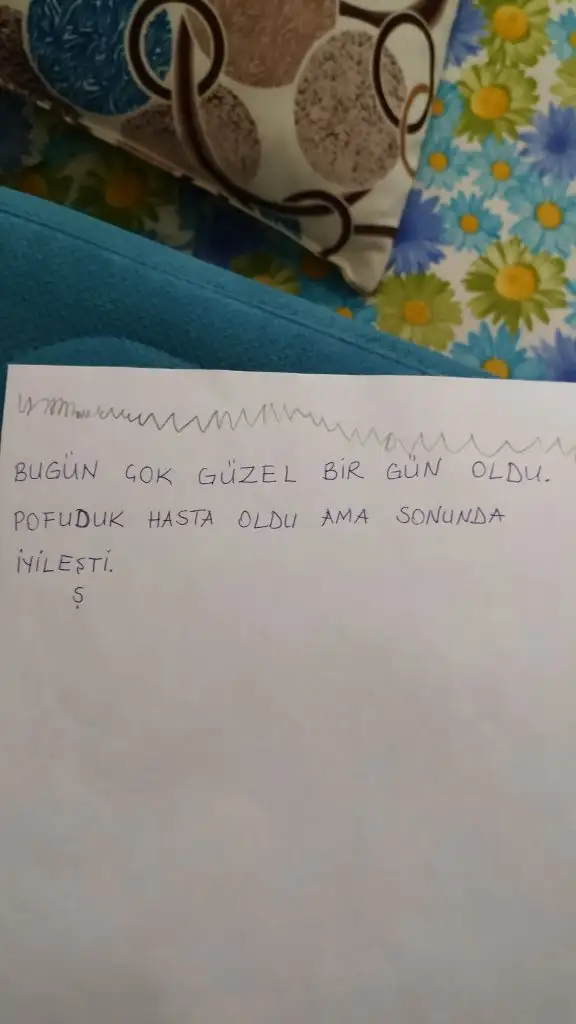 BUGÜN ÇOK GÜZEL BİR GÜN OLDU.
POFUDUK HASTA OLDU AMA SONUNDA
İYİLEŞTİ.
Ş